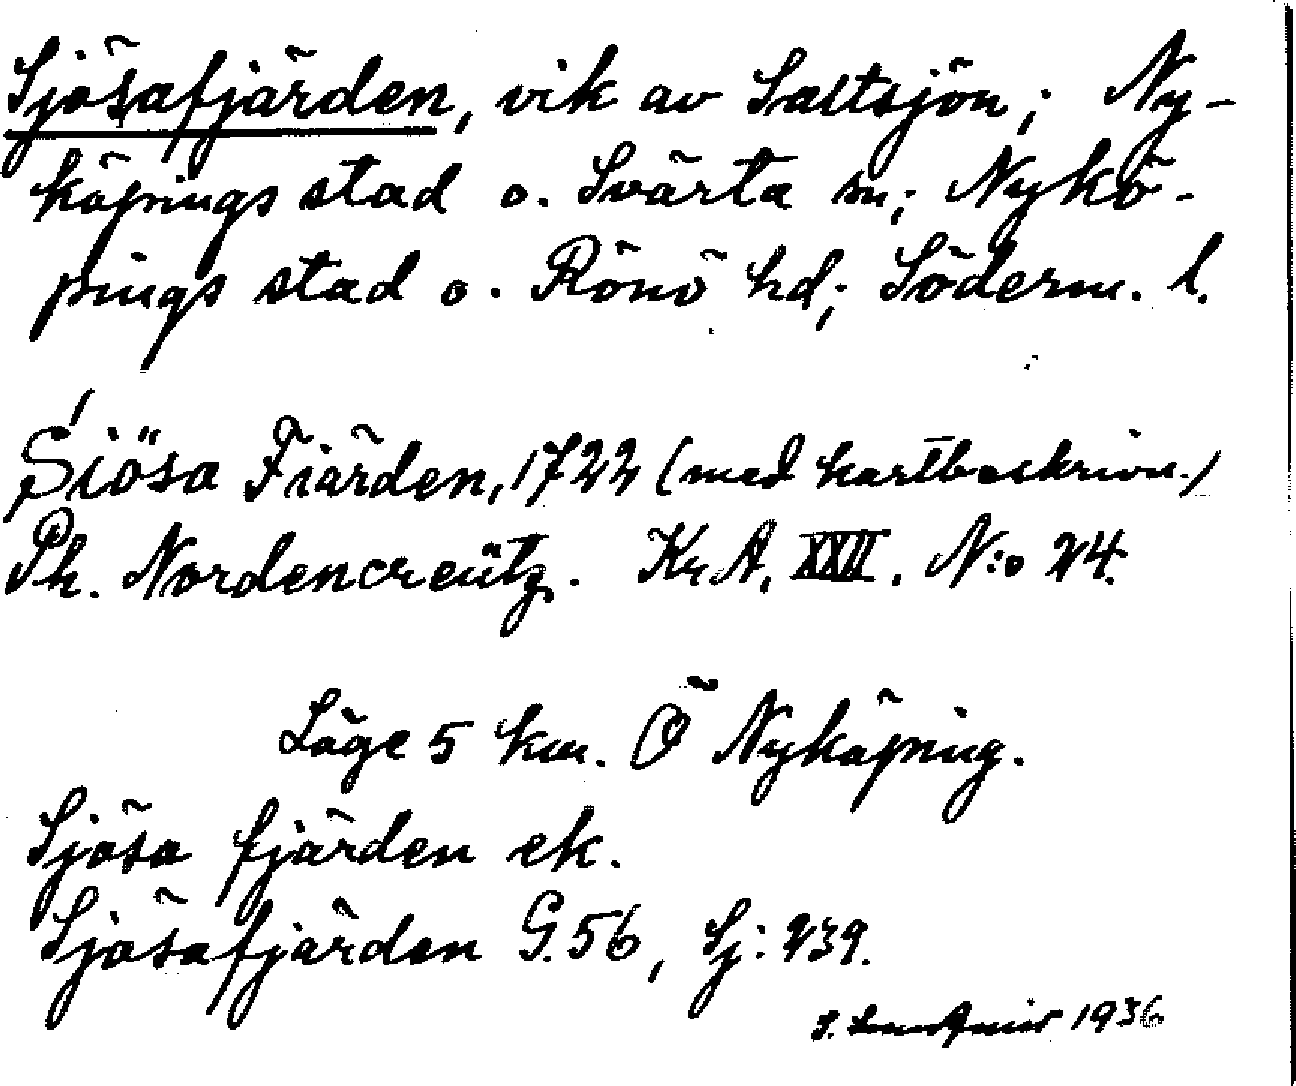 Sjösafjärden, vik av Saltsjön; Ny-
köpings stad o. Svärta sn; Nykö-
pings stad o. Rönö hd; Söderm. l.
Siösa Fiärden, 1722 (med kartbeskrivn.)
Ph. Nordencreütz. Kr.A. XXII. N:o 24.
Läge 5 km. Ö Nyköping.
Sjösa fjärden ek.
Sjösafjärden G. 56, Sj: 239.
1936